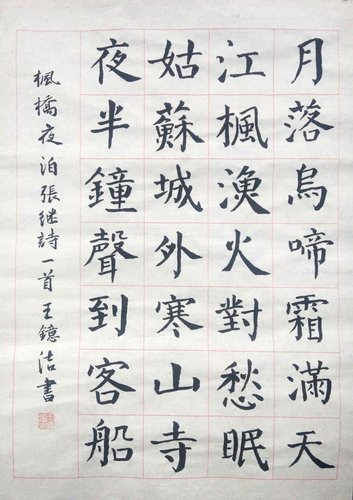 月落烏啼霜滿天
江楓漁火對愁眠
姑蘇城外寒山寺
夜半鐘聲到客船
楓橋夜泊張继詩一首王鐿洁書